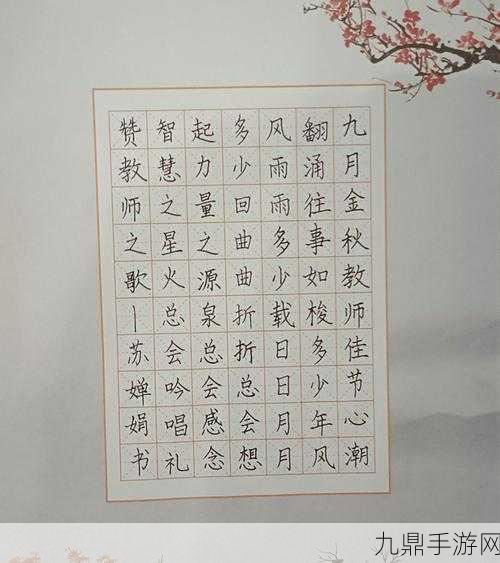 九月金秋教师佳节心潮
翻涌往事如梭多少年风
风雨雨多少载日日月月
多少回曲曲折折总会想
起力量之源泉总会感念
智慧之星火总会吟唱礼
赞教师之歌｜苏婵娟书
九鼎手游网